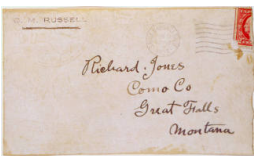 C. M. RUSSELL
Richard Jones
Como Co
Great Falls
Montana